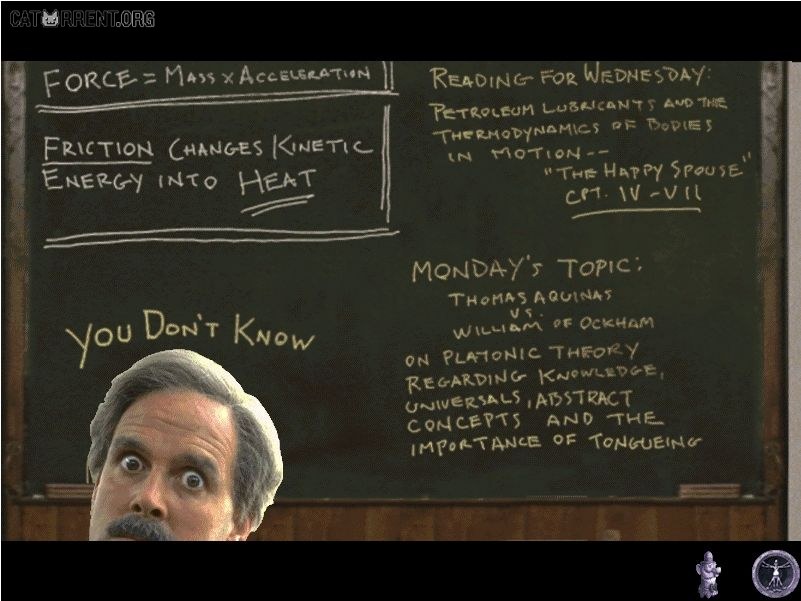 CATORRENT.ORG
FORCE = MASS x ACCELERATION
FRICTION CHANGES KINETIC
ENERGY INTO HEAT
READING FOR WEDNESDAY:
PETROLEUM LUBRICANTS AND THE
THERMODYNAMICS OF BODIES
IN MOTION--
"THE HAPPY SPOUSE"
CPT. IV - VII
YOU DON'T KNOW
MONDAY'S TOPIC:
THOMAS AQUINAS
VS.
WILLIAM OF OCKHAM
ON PLATONIC THEORY
REGARDING KNOWLEDGE,
UNIVERSALS, ABSTRACT
CONCEPTS AND THE
IMPORTANCE OF TONGUEING